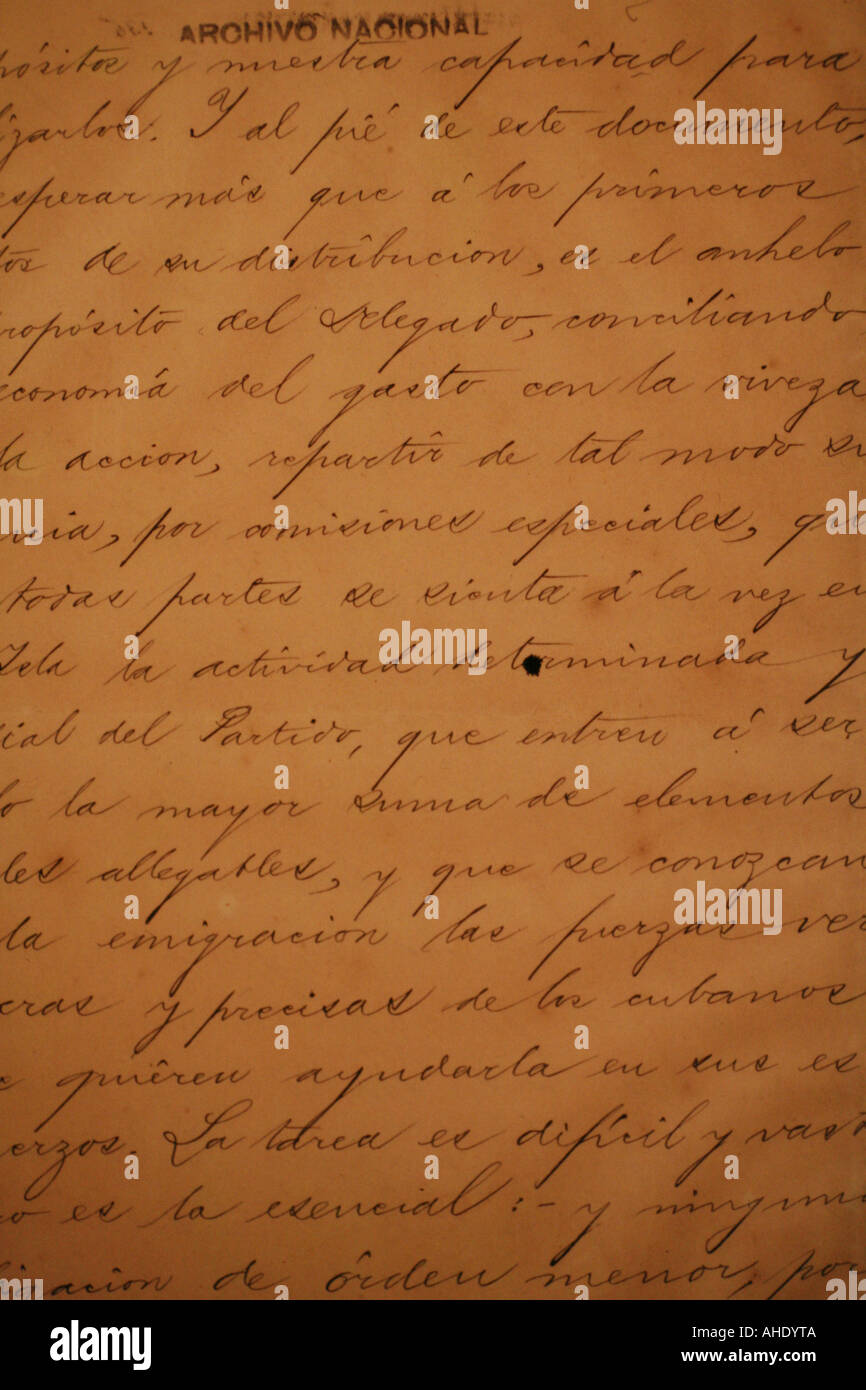 ARCHIVO NACIONAL
pósitos y nuestra capacidad para
izarlos. Y al pié de este documento,
esperar más que á los primeros
tos de su distribucion, es el anhelo
ropósito del Delegado, conciliando
economía del gasto con la viveza
la accion, repartir de tal modo su
ncia, por comisiones especiales, que
todas partes se sienta á la vez en
Isla la actividad determinada y
ial del Partido, que entren á ser
lo la mayor suma de elementos
les allegables, y que se conozcan
la emigracion las fuerzas ver
eras y precisas de los cubanos
e quieren ayudarla en sus es
erzos. La tarea es difícil y vast
ro es la esencial:- y ninguna
ligacion de órden menor, por
alamy
Image ID: AHDYTA
www.alamy.com